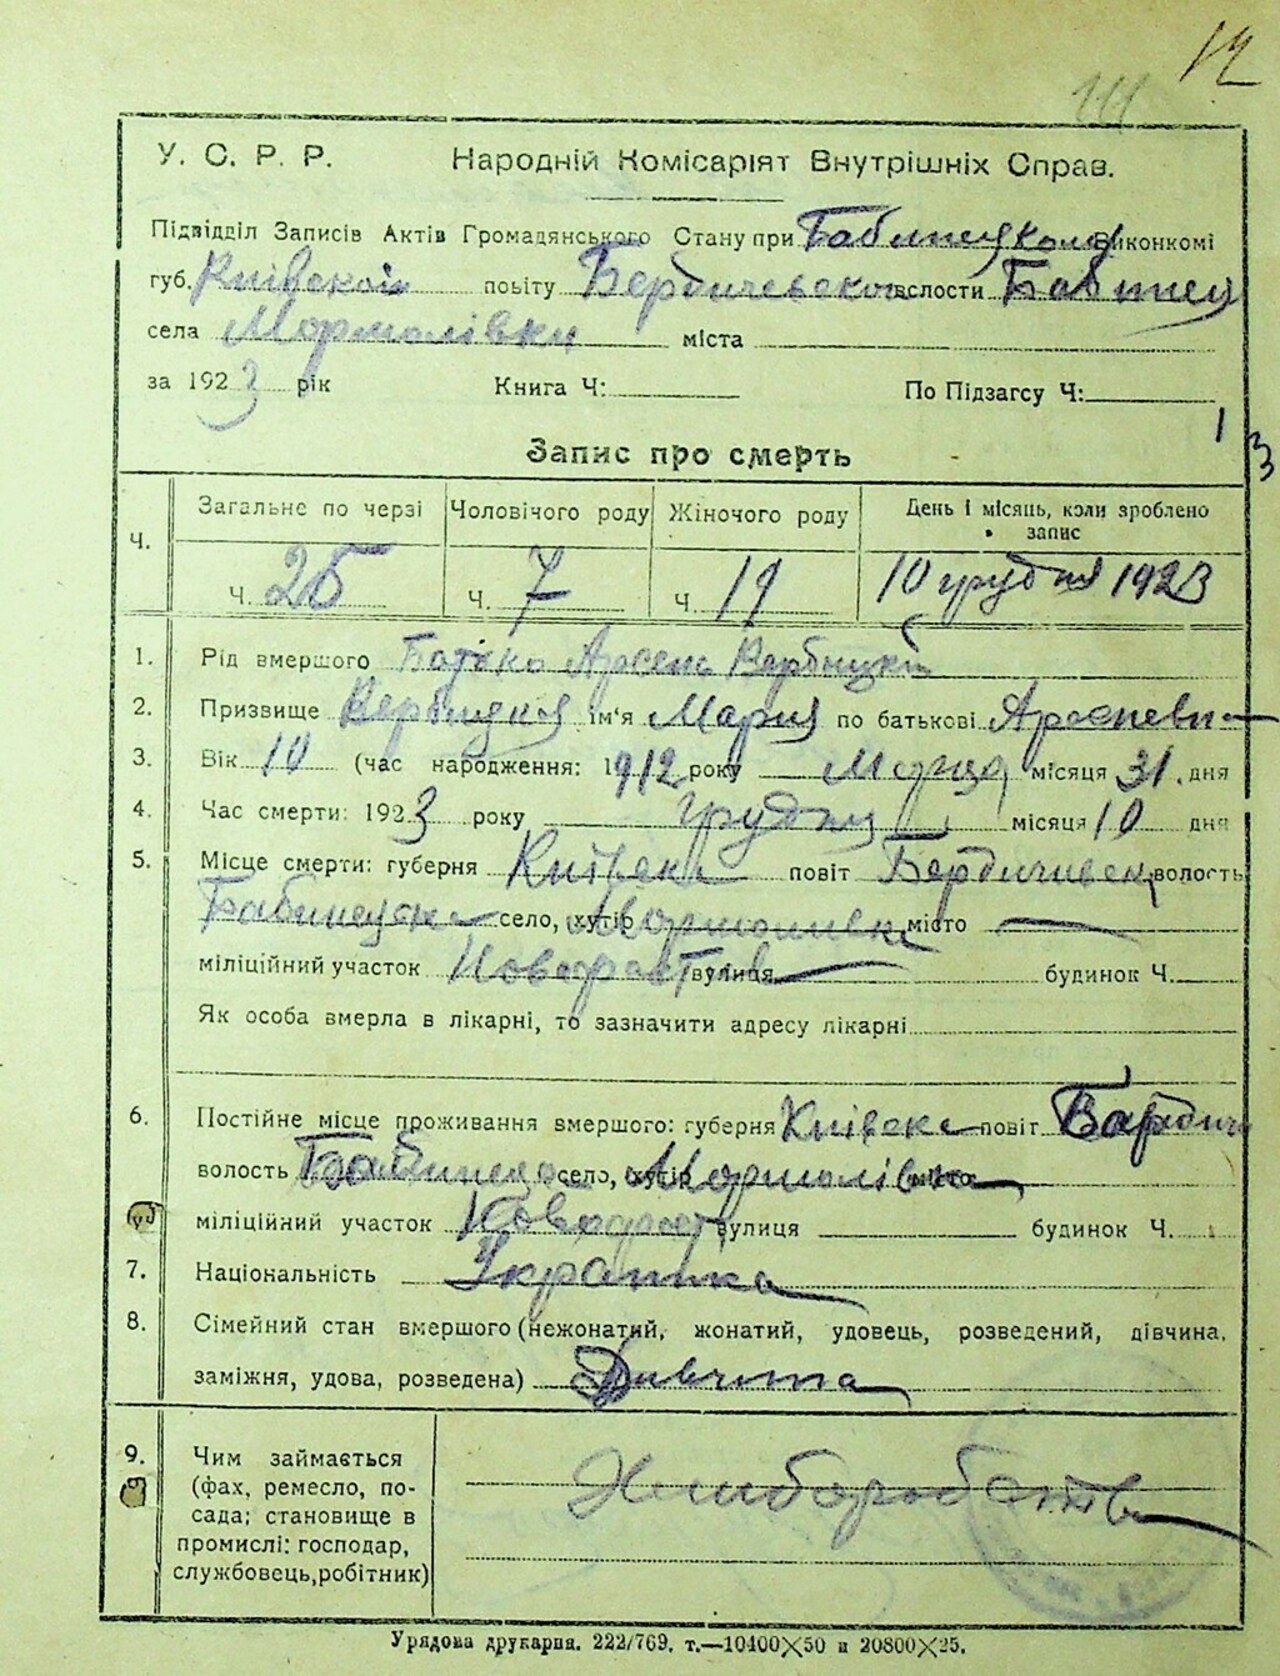 14
У. С. Р. Р. Народній Комісаріят Внутрішніх Справ.
Підвідділ Записів Актів Громадянського Стану при Бабинецкому Виконкомі
губ. Київской повіту Бердичевского волости Бабинец
села Мормолівки міста
за 1923 рік Книга Ч: По Підзагсу Ч:
13
Запис про смерть
Ч. Загальне по черзі Чоловічого роду Жіночого роду День і місяць, коли зроблено запис
Ч. 26 Ч. 7 Ч. 19 10 грудня 1923
1. Рід вмершого Батько Арсен Вербицкій
2. Призвище Вербицкая Ім'я Мария по батькові Арсеневн
3. Вік 10 (час народження: 1912 року Марца місяця 31 . дня
4. Час смерти: 1923 року грудня місяця 10 дня
5. Місце смерти: губерня Київска повіт Бердичивск волость
Бабинецка село, хутір Мормоливка місто
міліційний участок вулиця будинок Ч.
Як особа вмерла в лікарні, то зазначити адресу лікарні
6. Постійне місце проживання вмершого: губерня Київска повіт Бардич
волость Бабинецка село, хутір Мормолівка місто
міліційний участок вулиця будинок Ч.
7. Національність Українка
8. Сімейний стан вмершого (нежонатий, жонатий, удовець, розведений, дівчина,
заміжня, удова, розведена) Дивчина
9. Чим займається
(фах, ремесло, по-
сада; становище в
промислі: господар,
службовець, робітник)
Хлиборобства
Урядова друкарня. 222/769. т.—10400×50 и 20800×25.